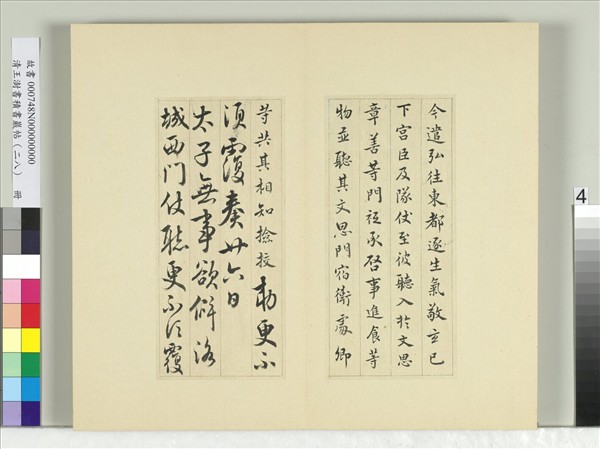 今遣弘往東都逐生氣敬玄已
下宫臣及隊仗至彼聽入於文思
章善等門祗承啓事進食等
物並聽其文思門宿衛處卿
等共其相知撿挍勅更不
須覆奏廿六日
太子無事欲洛
城西門仗聽更不須覆
故書 000748N000000000
清王澍書積書巖帖(二八) 冊
4